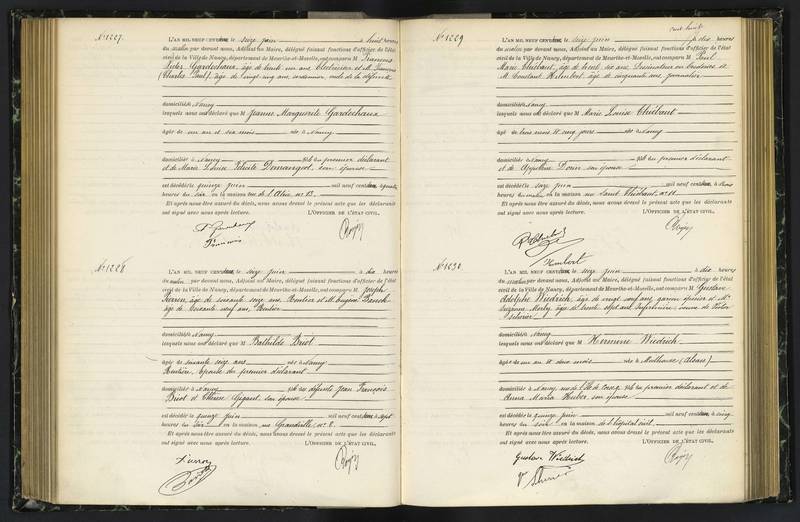 N° 1227.
L'AN MIL NEUF CENT le seize juin à huit heures
du matin par devant nous, Adjoint au Maire, délégué faisant fonctions d'officier de l'état
civil de la Ville de Nancy, département de Meurthe-et-Moselle, ont comparu M François
Jules Gardechaux, âgé de trente un ans et M François
(Charles Paul), âgé de vingt cinq ans, cordonnier, oncle de la défunte
domiciliés Nancy
lesquels nous ont déclaré que M Jeanne Marguerite Gardechaux
âgée de un an et six mois née à Nancy
domiciliée à Nancy fille du premier déclarant
et de Marie Louise Félicité Demangeot, son épouse
est décédée le quinze juin mil neuf cent à quatre
heures du soir en la maison rue de l'Abic n° 13.
Et après nous être assuré du décès, nous avons dressé le présent acte que les déclarants
ont signé avec nous après lecture. L'OFFICIER DE L'ÉTAT CIVIL,
François
N° 1228
L'AN MIL NEUF CENT le seize juin à dix heures
du matin par devant nous, Adjoint au Maire, délégué faisant fonctions d'officier de l'état
civil de la Ville de Nancy, département de Meurthe-et-Moselle, ont comparu M Joseph
Pierron, âgé de soixante seize ans, Rentier et M Eugène
âgé de soixante neuf ans, Rentier
domiciliés Nancy
lesquels nous ont déclaré que M Bathilde Briot
âgée de soixante seize ans née à Nancy
Rentière, épouse du premier déclarant
domiciliée à Nancy fille des défunts Jean François
Briot et Thérèse Gigant son épouse
est décédée le quinze juin mil neuf cent à sept
heures du soir en la maison rue Grandville n° 8.
Et après nous être assuré du décès, nous avons dressé le présent acte que les déclarants
ont signé avec nous après lecture. L'OFFICIER DE L'ÉTAT CIVIL,
Pierron
cent huit
N° 1229
L'AN MIL NEUF CENT le seize juin à dix heures
du matin par devant nous, Adjoint au Maire, délégué faisant fonctions d'officier de l'état
civil de la Ville de Nancy, département de Meurthe-et-Moselle, ont comparu M Paul
Marie Thiébaut, âgé de trente six ans, Dessinateur en broderie et
M Constant Humbert, âgé de cinquante ans, journalier
domiciliés Nancy
lesquels nous ont déclaré que M Marie Louise Thiébaut
âgée de trois mois et cinq jours née à Nancy
domiciliée à Nancy fille du premier déclarant
et de Appoline Louis son épouse
est décédée le seize juin mil neuf cent à trois
heures du matin en la maison rue Saint Thiébaut n° 11
Et après nous être assuré du décès, nous avons dressé le présent acte que les déclarants
ont signé avec nous après lecture. L'OFFICIER DE L'ÉTAT CIVIL,
P Thiébaut
Humbert
N° 1230
L'AN MIL NEUF CENT le seize juin à dix heures
du matin par devant nous, Adjoint au Maire, délégué faisant fonctions d'officier de l'état
civil de la Ville de Nancy, département de Meurthe-et-Moselle, ont comparu M Gustave
Adolphe Wiedrich, âgé de vingt neuf ans, garçon épicier et Me
âgée de trente sept ans, Infirmière, veuve de Victor
domiciliés Nancy
lesquels nous ont déclaré que M Hermine Wiedrich
âgée de un an et deux mois née à Mulhouse (Alsace)
domiciliée à Nancy, fille du premier déclarant et de
Anna Maria Huber, son épouse
est décédée le quinze juin mil neuf cent à cinq
heures du soir en la maison de l'hôpital civil
Et après nous être assuré du décès, nous avons dressé le présent acte que les déclarants
ont signé avec nous après lecture. L'OFFICIER DE L'ÉTAT CIVIL,
Gustave Wiedrich